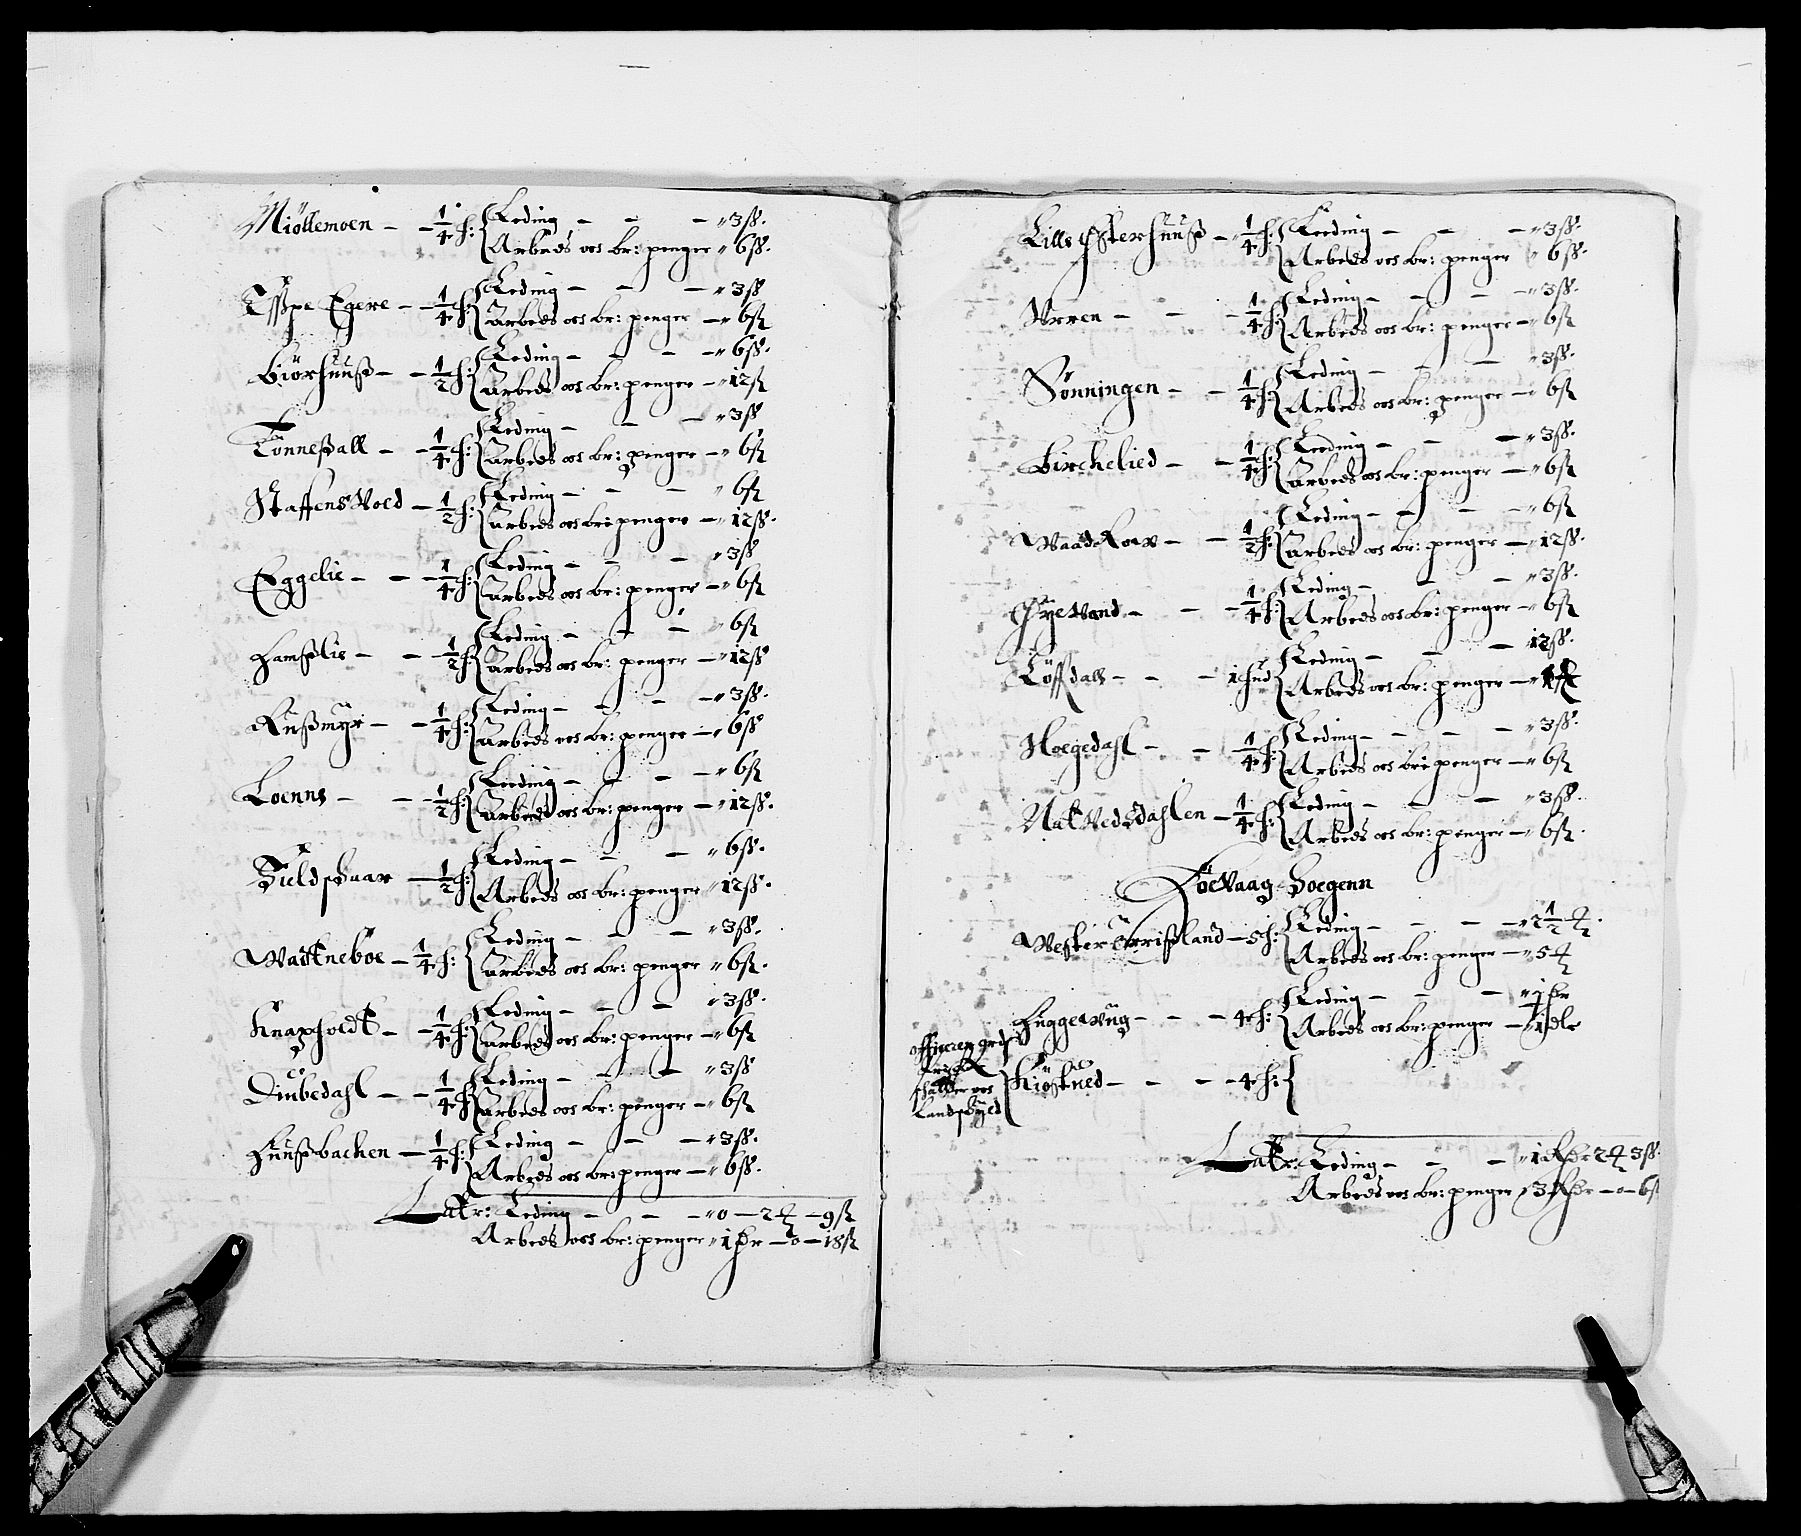 Miöllemoen — — 1/4 h: { Leding — — — „ 3 ß.
Arbeds oes br: penger „ 6 ß.
Egere — — 1/4 h: { Leding — — — „ 3 ß.
Arbeds oes br: penger — „ 6 ß
Biörhuuß — — 1/2 h: { Leding — — — „ 6 ß.
Arbeds oes br: penger — „ 12 ß
Tönneßall — — 1/4 h: { Leding — — — „ 3 ß
Arbeds oes br: penger — „ 6 ß
StaffensWoed — 1/2 h: { Leding — — — „ 6 ß
Arbeds oes br: penger — „ 12 ß.
Eggelie — — 1/4 h: { Leding — — — „ 3 ß
Arbeds oes br: penger — „ 6 ß
Hamßlie — — 1/2 h: { Leding — — — „ 6 ß
Arbeds oes br: penger — „ 12 ß
Rußmyr — — 1/4 h: { Leding — — — „ 3 ß.
Arbeds oes br: penger — „ 6 ß
Loenne — — 1/2 h: { Leding — — — „ 6 ß
Arbeds oes br: penger — „ 12 ß.
— 1/2 h: { Leding — — — „ 6 ß.
Arbeds oes br: penger „ 12 ß.
Watkneboe — 1/4 h: { Leding — — — „ 3 ß.
Arbeds oes br: penger „ 6 ß.
Knapholdt — — 1/4 h: { Leding — — — „ 3 ß.
Arbeds oes br: penger — „ 6 ß
Diubedahl — — 1/4 h: { Leding — — — „ 3 ß
Arbeds oes br: penger — „ 6 ß
Huußbachen — 1/4 h: { Leding — — — „ 3 ß.
Arbeds oes br: penger — „ 6 ß.
Latr: Leding — — — „ 0 — 2 — 9 ß
Arbeds oes br: penger „ 1 — 0 — 18 ß
Lille Østerhuuß — 1/4 h: { Leding — — — „ 3 ß.
Arbeds oes br: penger „ 6 ß.
Urren — — — 1/4 h: { Leding — — — „ 3 ß.
Arbeds oes br: penger — „ 6 ß
Sönningen — — 1/4 h: { Leding — — — „ 3 ß.
Arbeds oes br: penger — „ 6 ß
Birchelied — — 1/4 h: { Leding — — — „ 3 ß.
Arbeds oes br: penger — „ 6 ß
— — 1/2 h: { Leding — — — „ 6 ß
Arbeds oes br: penger — „ 12 ß.
Øyewand — — — 1/4 h: { Leding — — — „ 3 ß.
Arbeds oes br: penger — „ 6 ß
Löffdall — — — 1 hud { Leding — — — 12 ß.
Arbeds oes br: penger — „
Hoegedahl — — 1/4 h: { Leding — — — „ 3 ß.
Arbeds oes br: penger — „ 6 ß
NatVedsdahlen — 1/4 h: { Leding — — — „ 3 ß.
Arbeds oes br: penger — „ 6 ß.
HöeVaag Soegenn
Wester Örrißland — 5 h: { Leding — — — „ 2 1/2
Arbeds oes br: penger — „ 5
— — — 4 h: { Leding — — — „ 1
Arbeds oes br: penger — „ 1 dlr
Officeren
schatter oes
Landschyld } Kiöstued — — — 4 h: {
Latr: Leding — — — „ 1 2 3 ß.
Arbeds oes br: penger 3 — 0 — 6 ß